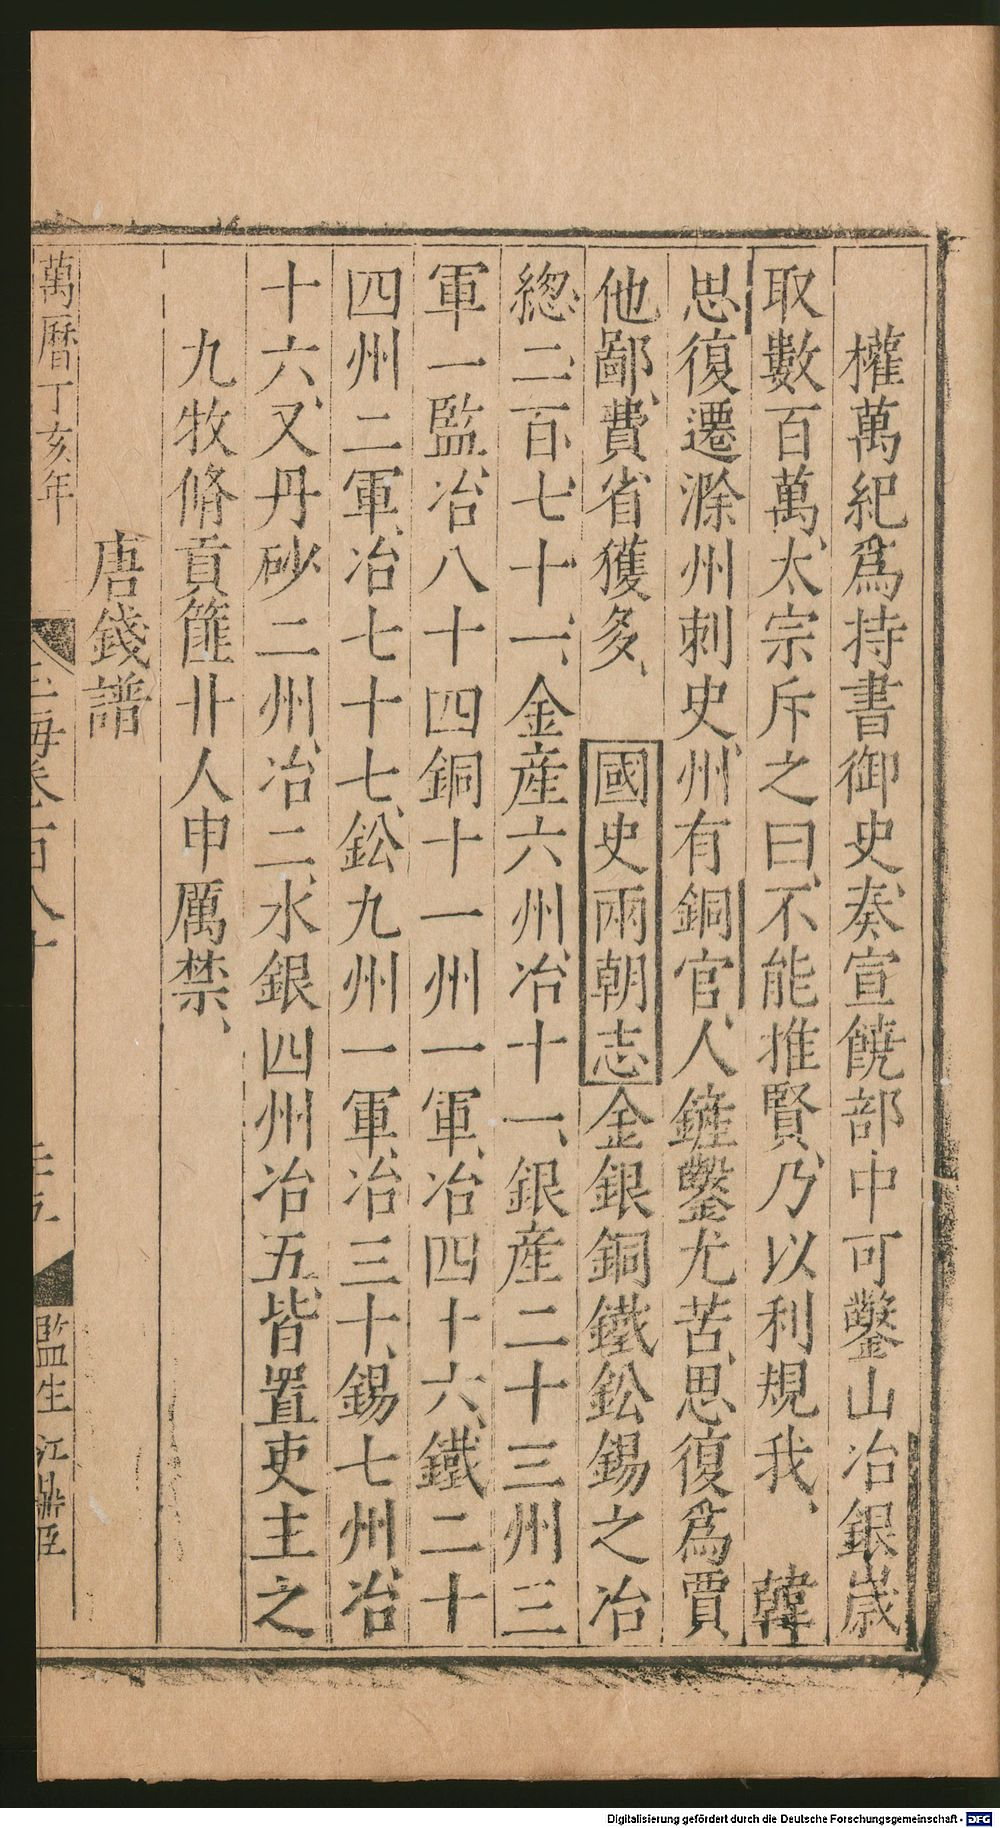 權萬紀爲持書御史奏宣饒部中可鑿山冶銀歲
取數百萬太宗斥之曰不能推賢乃以利規我、韓
思復遷滁州刺史州有銅官、人鏟鑿尤苦思復爲賈
他鄙費省獲多、國史兩朝志金銀銅鐵鈆錫之冶
緫二百七十一、金産六州、冶十一、銀産二十三州三
軍一監、冶八十四銅十一州一軍、冶四十六、鐵二十
四州二軍、冶七十七、鈆九州一軍、冶三十、錫七州、冶
十六、又丹砂二州、冶二、水銀四州冶五、皆置吏主之
九牧脩貢篚卝人申厲禁、
唐錢譜
萬曆丁亥年
玉海卷一百八十
監生 江鼎臣
Digitalisierung gefördert durch die Deutsche Forschungsgemeinschaft - DFG